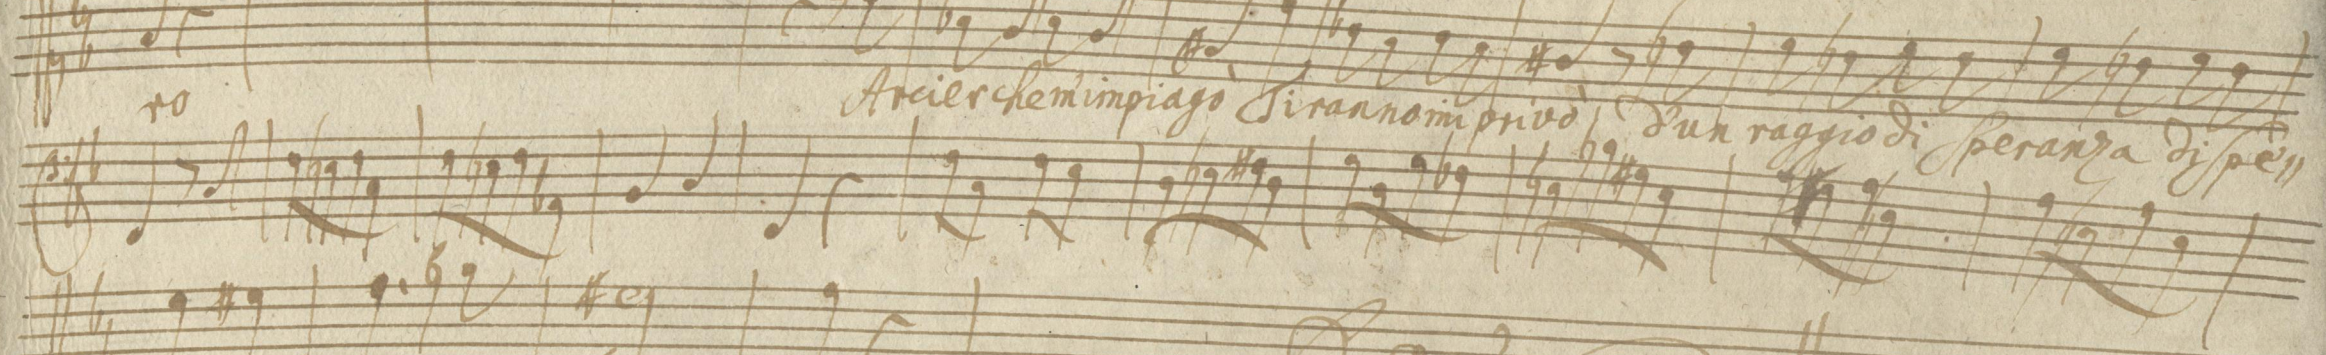 ro Arcier che m'impiagò Tiranno mi privò d'un raggio di speranza di spe"